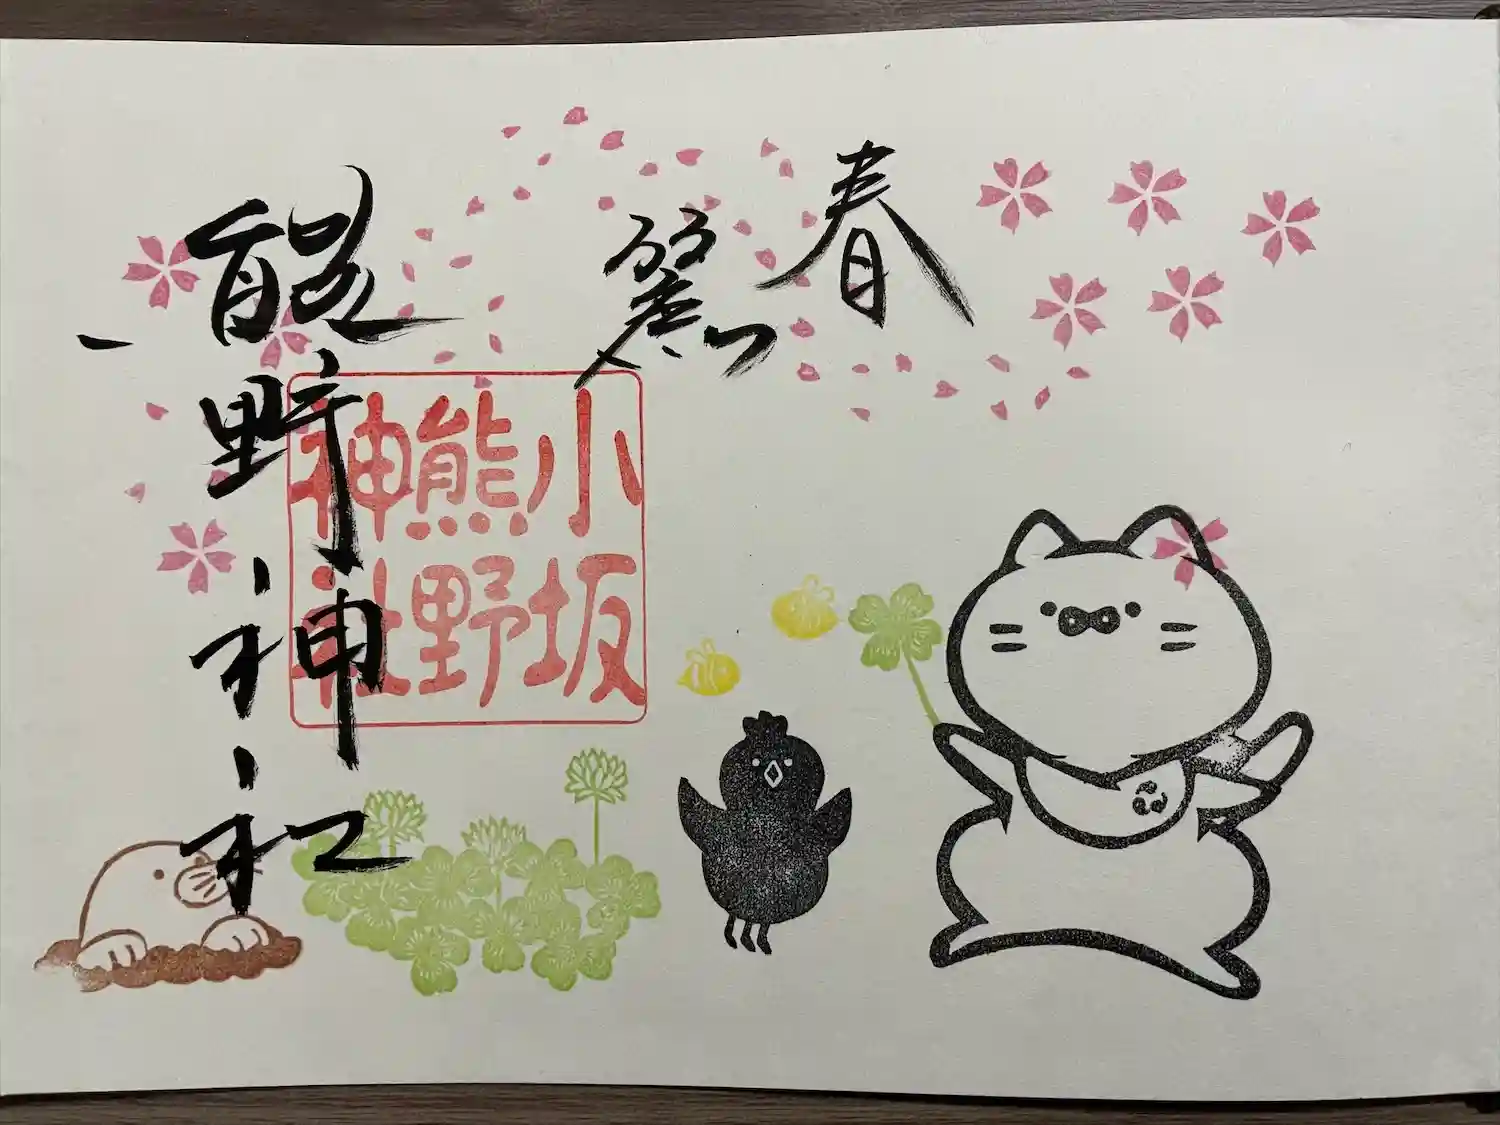 春
麗ら
熊野神社
小坂
熊野
神社